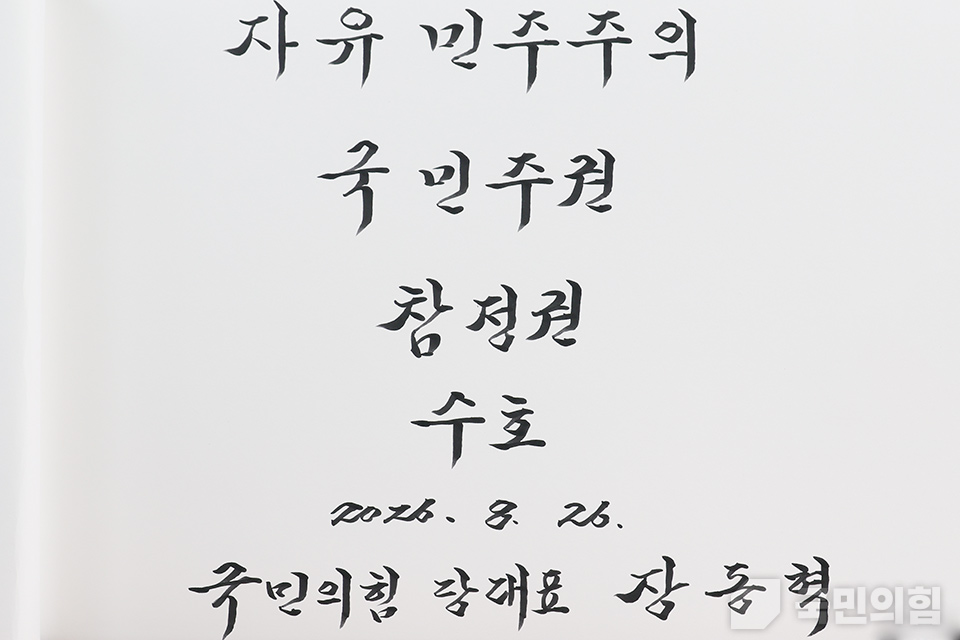 자유 민주주의
국민주권
참정권
수호
2026. 8. 26.
국민의힘 당대표 장동혁
국민의힘